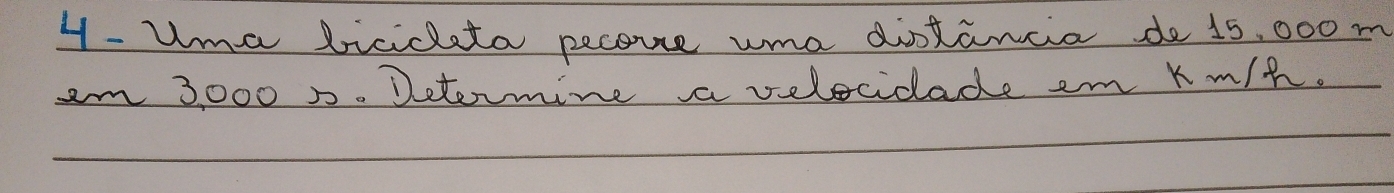 4- Uma bicicleta pecorre uma distância de 15.000 m
em 3.000 s. Determine a velocidade em Km/h.